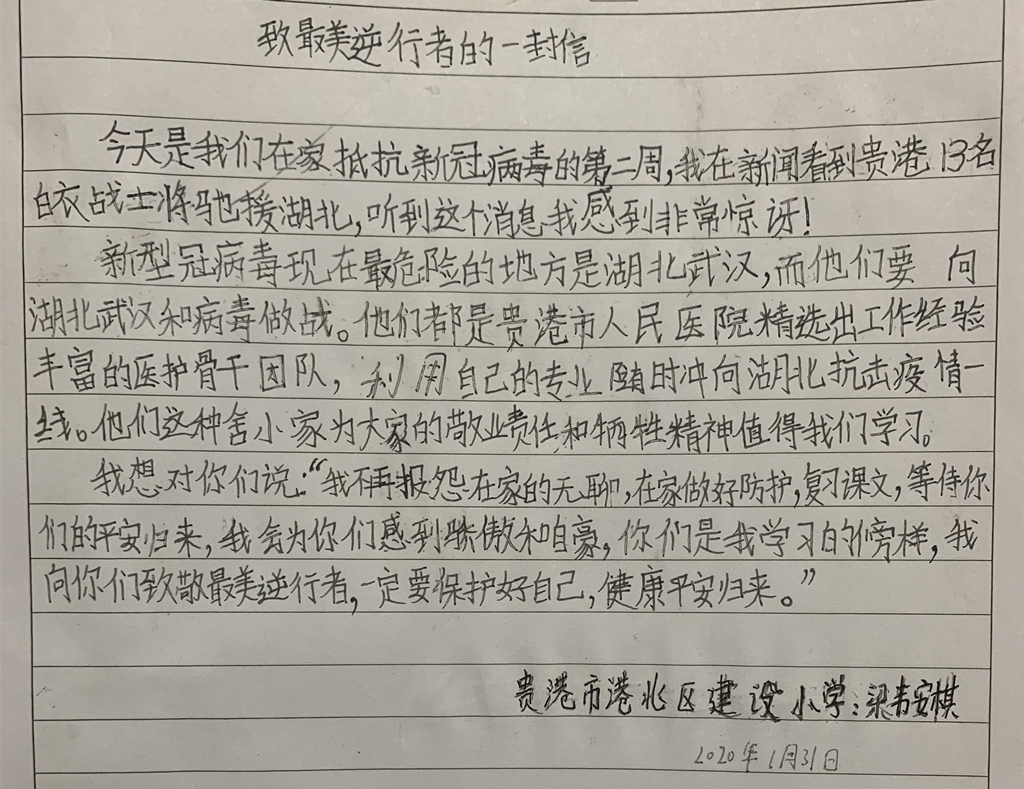 致最美逆行者的一封信
今天是我们在家抵抗新冠病毒的第二周,我在新闻看到贵港13名
白衣战士将驰援湖北,听到这个消息我感到非常惊讶!
新型冠病毒现在最危险的地方是湖北武汉,而他们要向
湖北武汉和病毒做战。他们都是贵港市人民医院精选出工作经验
丰富的医护骨干团队,利用自己的专业随时冲向湖北抗击疫情一
线。他们这种舍小家为大家的敬业责任和牺牲精神值得我们学习。
我想对你们说:“我不再报怨在家的无聊,在家做好防护,复习课文,等待你
们的平安归来,我会为你们感到骄傲和自豪,你们是我学习的傍样,我
向你们致敬最美逆行者,一定要保护好自己,健康平安归来。”
贵港市港北区建设小学:梁韦安棋
2020年1月31日